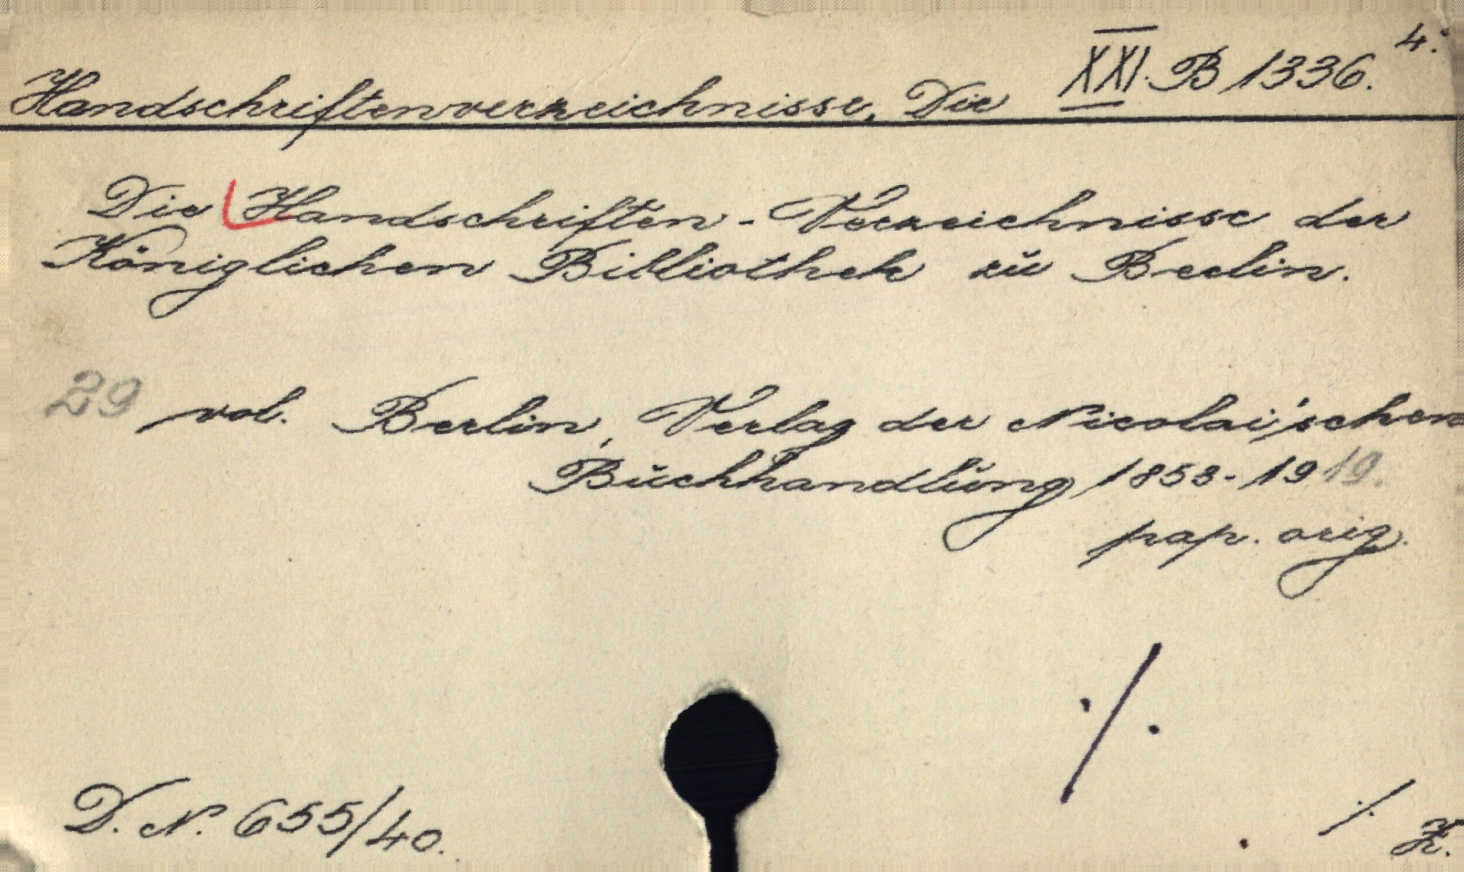 Handschriftenverzeichnisse, Die XXI. B 1336. 4.°
Die Handschriften-Verzeichnisse der
Königlichen Bibliothek zŭ Berlin.
29 vol. Berlin, Verlag der Nicolai'schen
Bŭchhandlŭng 1853-1919.
pap. orig.
./.
D. N. 655/40.
./. K.